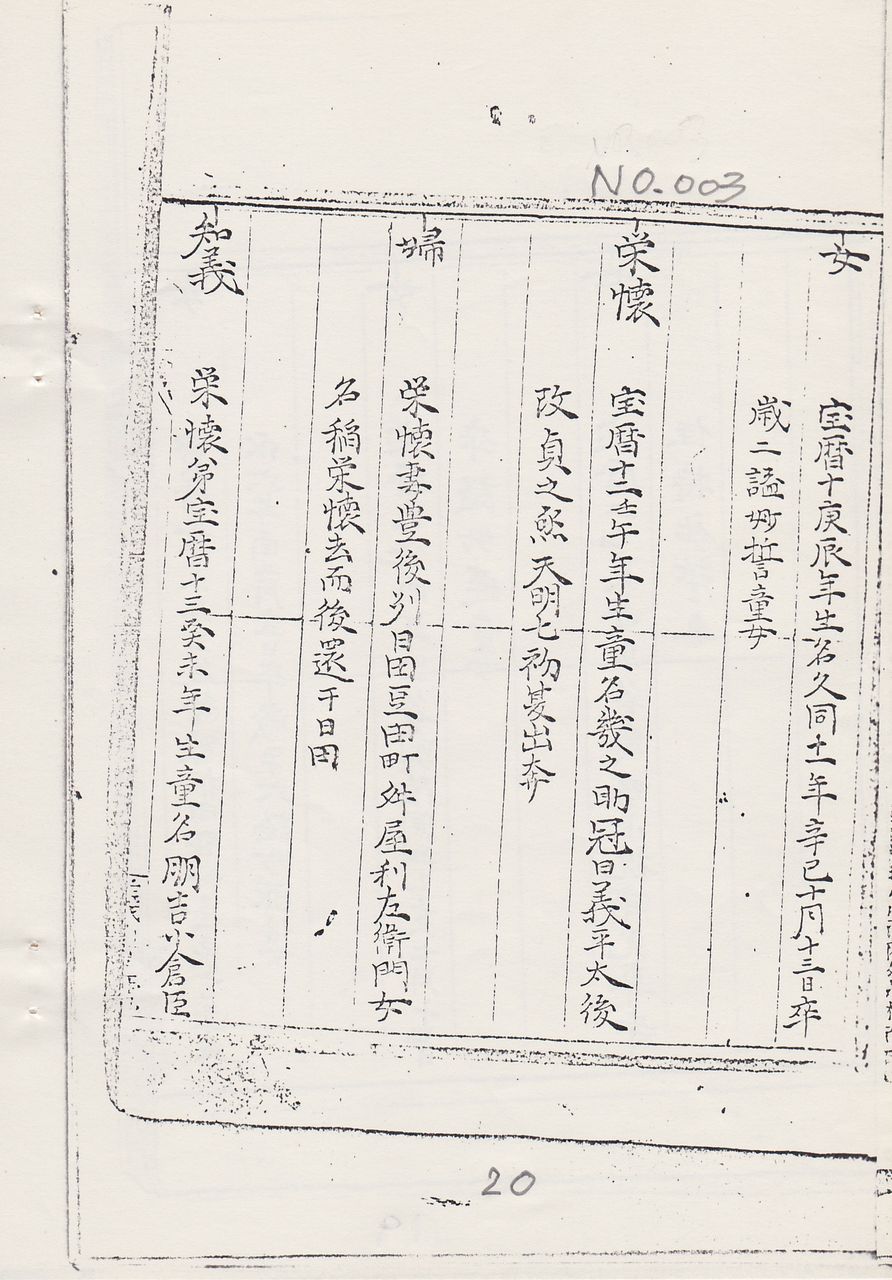 NO.003
女
宝暦十庚辰年生名久同十一年辛巳十月十三日卒
歳二謚妙誓童女
栄懐
宝暦十二壬午年生童名幾之助冠曰義平太後
改貞之烝天明七初夏出奔
婦
栄懐妻豊後州日田豆田町舛屋利左衛門女
名稲栄懐去而後還于日田
知義
栄懐弟宝暦十三癸未年生童名朋吉小倉臣
20